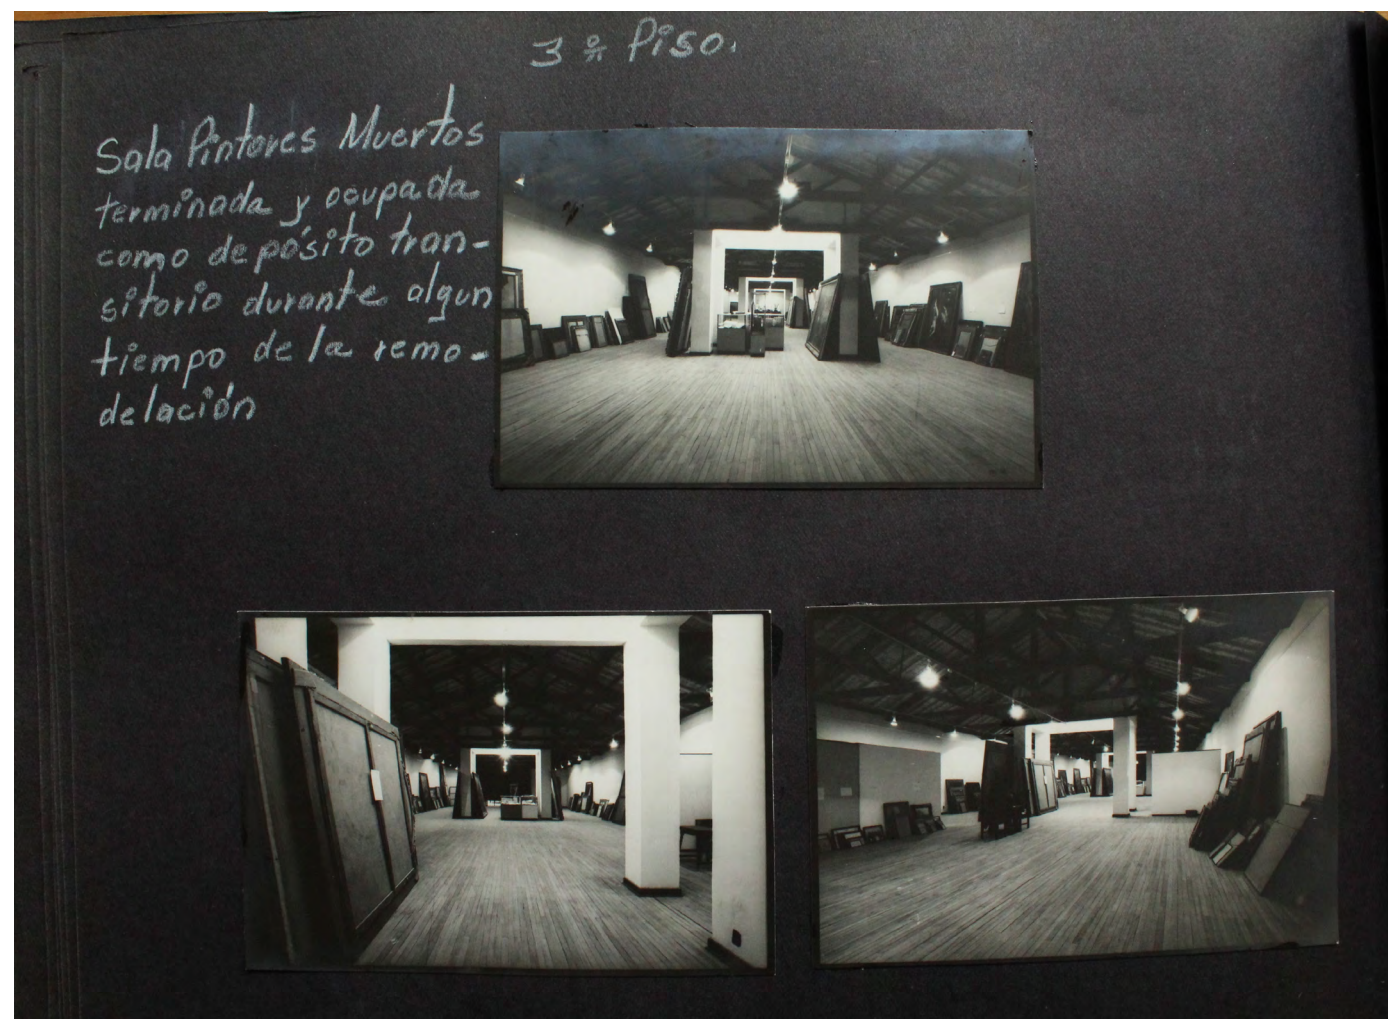 3º Piso.
Sala Pintores Muertos
terminada y ocupada
como depósito tran-
sitorio durante algun
tiempo de la remo-
delación